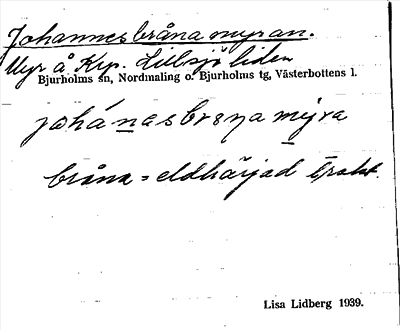 Johannesbrånamyran.
Myr å Krp. Lillsjöliden
Bjurholms sn, Nordmaling o. Bjurholms tg, Västerbottens l.
johánasbrånamỿra
bråna = eldhärjad trakt.
Lisa Lidberg 1939.